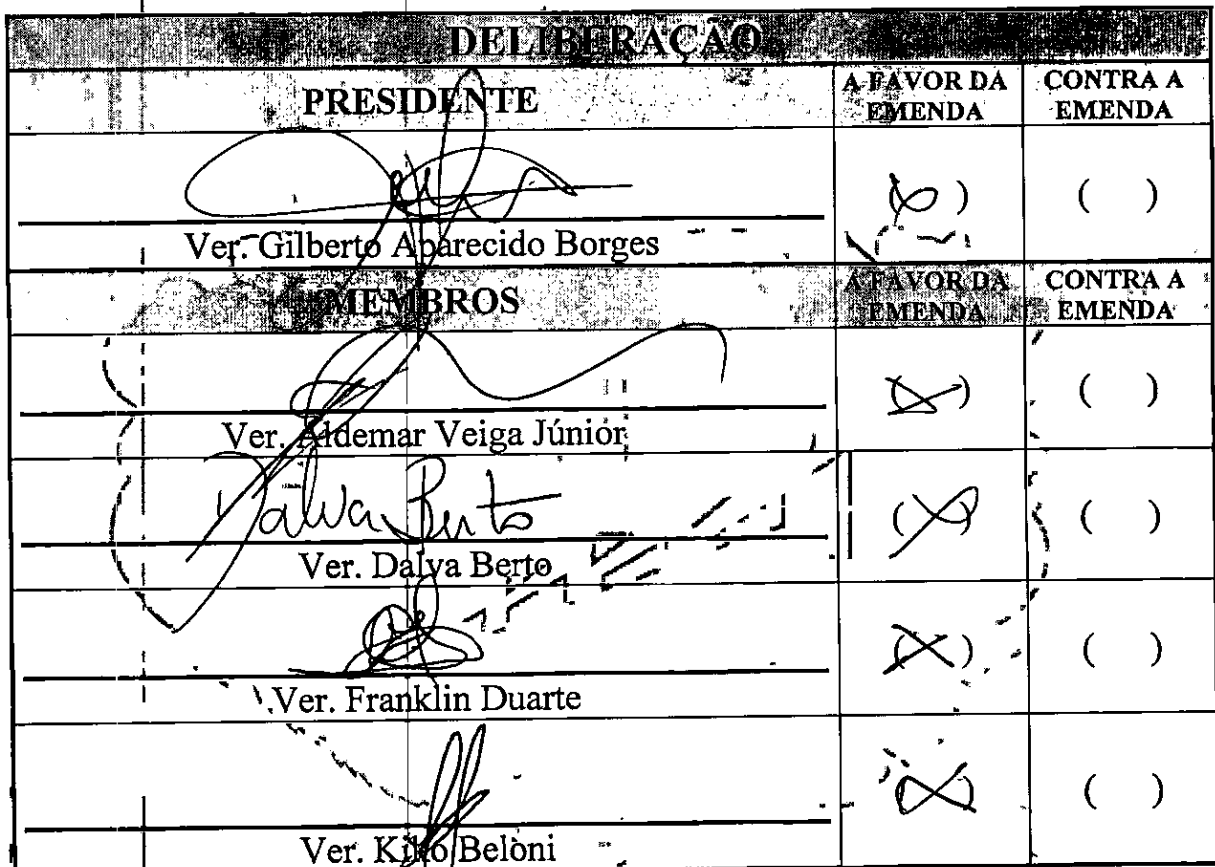 DELIBERAÇÃO
PRESIDENTE
A FAVOR DA EMENDA
CONTRA A EMENDA
Ver. Gilberto Aparecido Borges
( )
MEMBROS
A FAVOR DA EMENDA
CONTRA A EMENDA
Ver. Aldemar Veiga Júnior
( )
Dalva Berto
Ver. Dalva Berto
( )
Ver. Franklin Duarte
( )
Ver. Kiko Beloni
( )